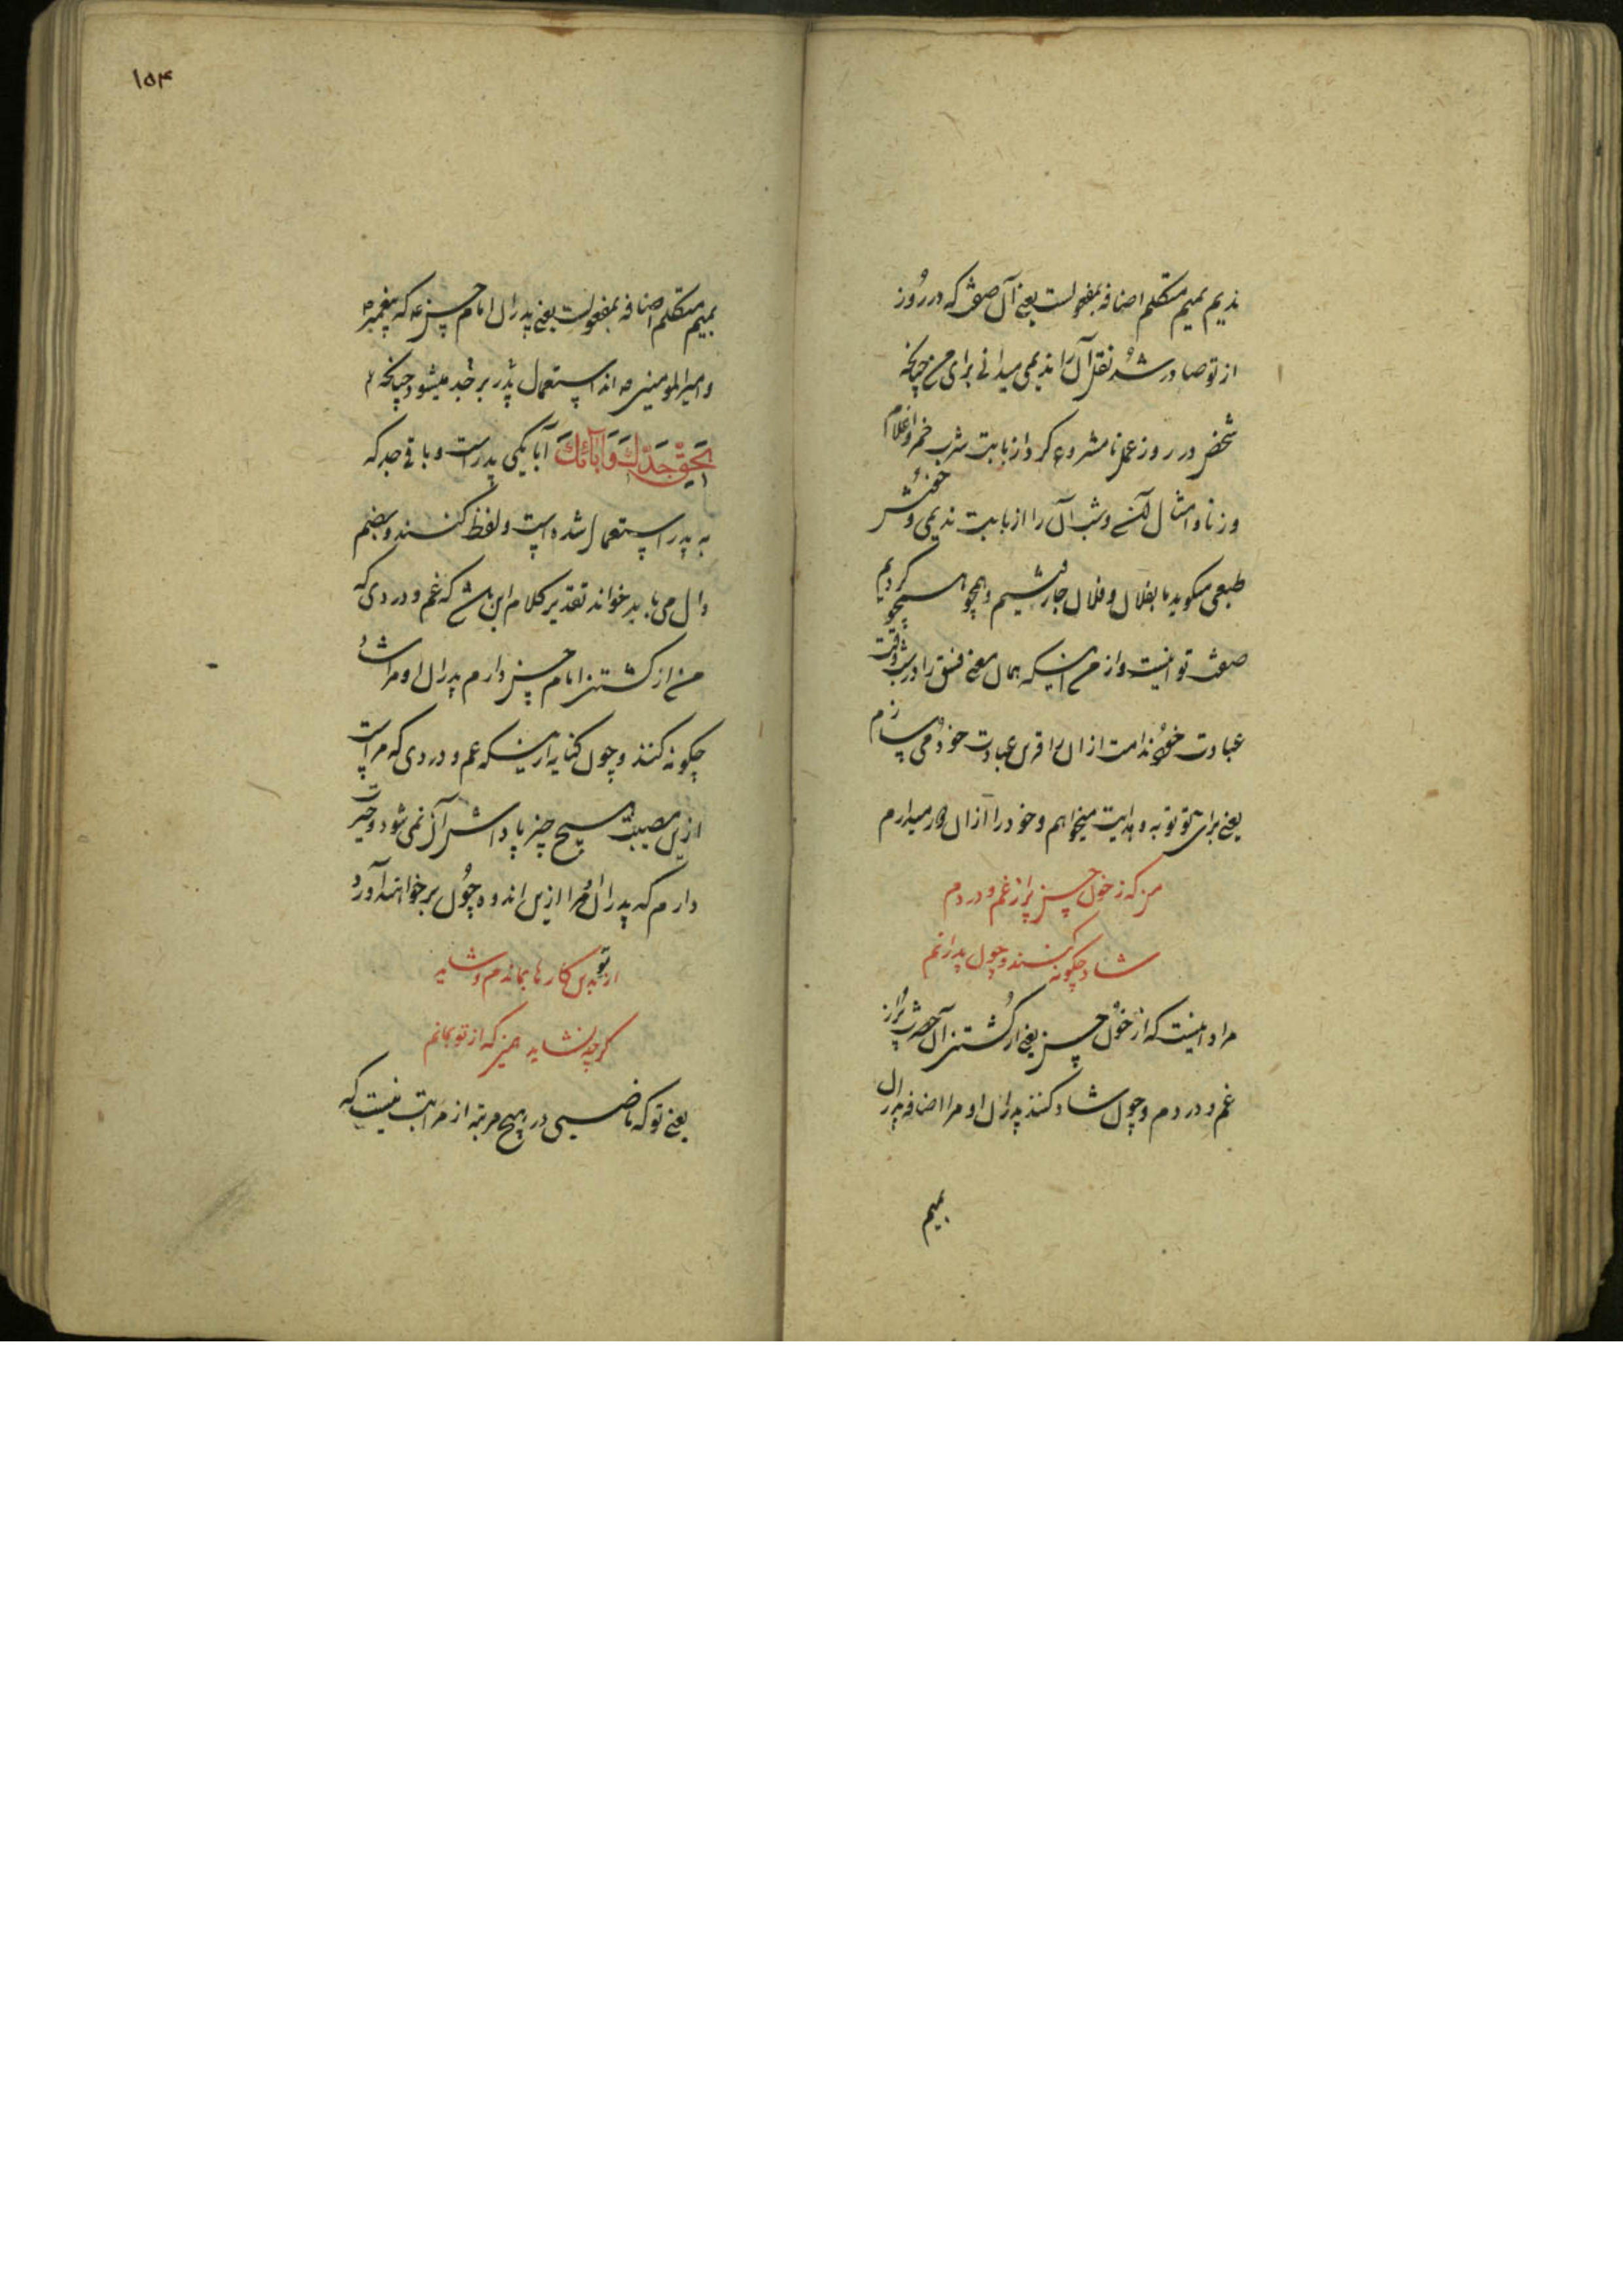 ندیم بمیم متکلم اضافه بمفعولست یعنی آن صفت که در روز
از تو صادر شد نقل آن را ندیمی میدانی برای من چنانکه
شخص در روز عمل نامشروع کرد از بابت شرب خمر و اغلام
و زنا و امثال آن و شب آن را از بابت ندیمی و خوش
طبعی میگوید ما بفلان و فلان جا رفتیم و همچو همچو کردیم
صفت تو اینست و از من اینکه همان معنی فسق را در شب وقت
عبادت خود ندامت از آن را قرین عبادت خود می سازم
یعنی برای تو توبه و هدایت میخواهم و خود را از آن دور میدارم
من که ز خون حسین پر از غم و دردم
شاد چگونه کنند و چون پدرانم
مراد اینست که از خون حسین یعنی از کشتن آن حضرت پر از
غم و دردم و چون شاد کنند پدران او مرا اضافه پدران
بمیم
۱۵۴
بمیم متکلم اضافه بمفعولست یعنی پدران امام حسین ع که پیغمبر ص
و امیرالمومنین ع اند استعمال پدر بر جد میشود چنانکه
بحق جدك وآبائك آبا یکی پدر است و باقی جد که
به پدر استعمال شده است و لفظ کنند و بضم
دال می باید خواند تقدیر کلام این باشد که غم و دردی که
من از کشتن امام حسین دارم پدران او مرا شاد
چگونه کنند و چون کنایه از اینکه غم و دردی که مراست
ازین مصیبت هیچ چیز پاداش آن نمی شود و حیرت
دارم که پدران او مرا ازین اندوه چون بر خواهند آورد
از تو بدین کارها بماندم و شاید
گرچه نشاید همی که از تو بمانم
یعنی تو که ناصبیی در هیچ مرتبه از مراتب نیست که